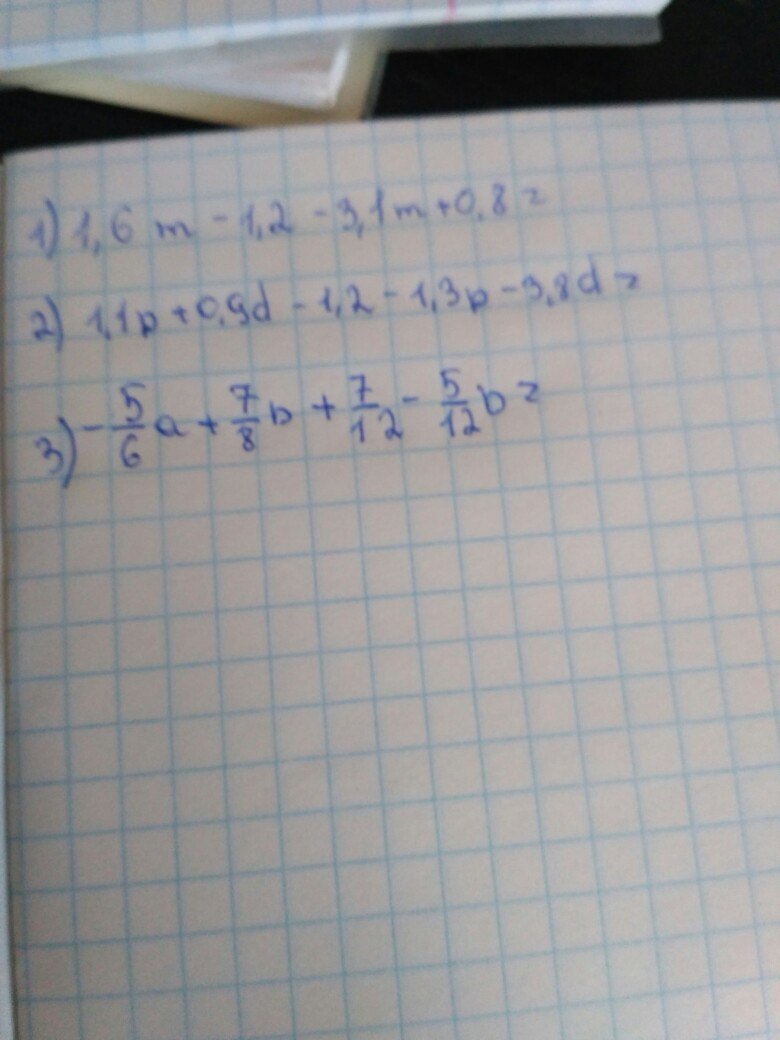 1) 1,6 m - 1,2 - 3,1m + 0,8 =
2) 1,1p + 0,9d - 1,2 - 1,3p - 3,8d =
3) - 5/6 a + 7/8 b + 7/12 - 5/12 b =